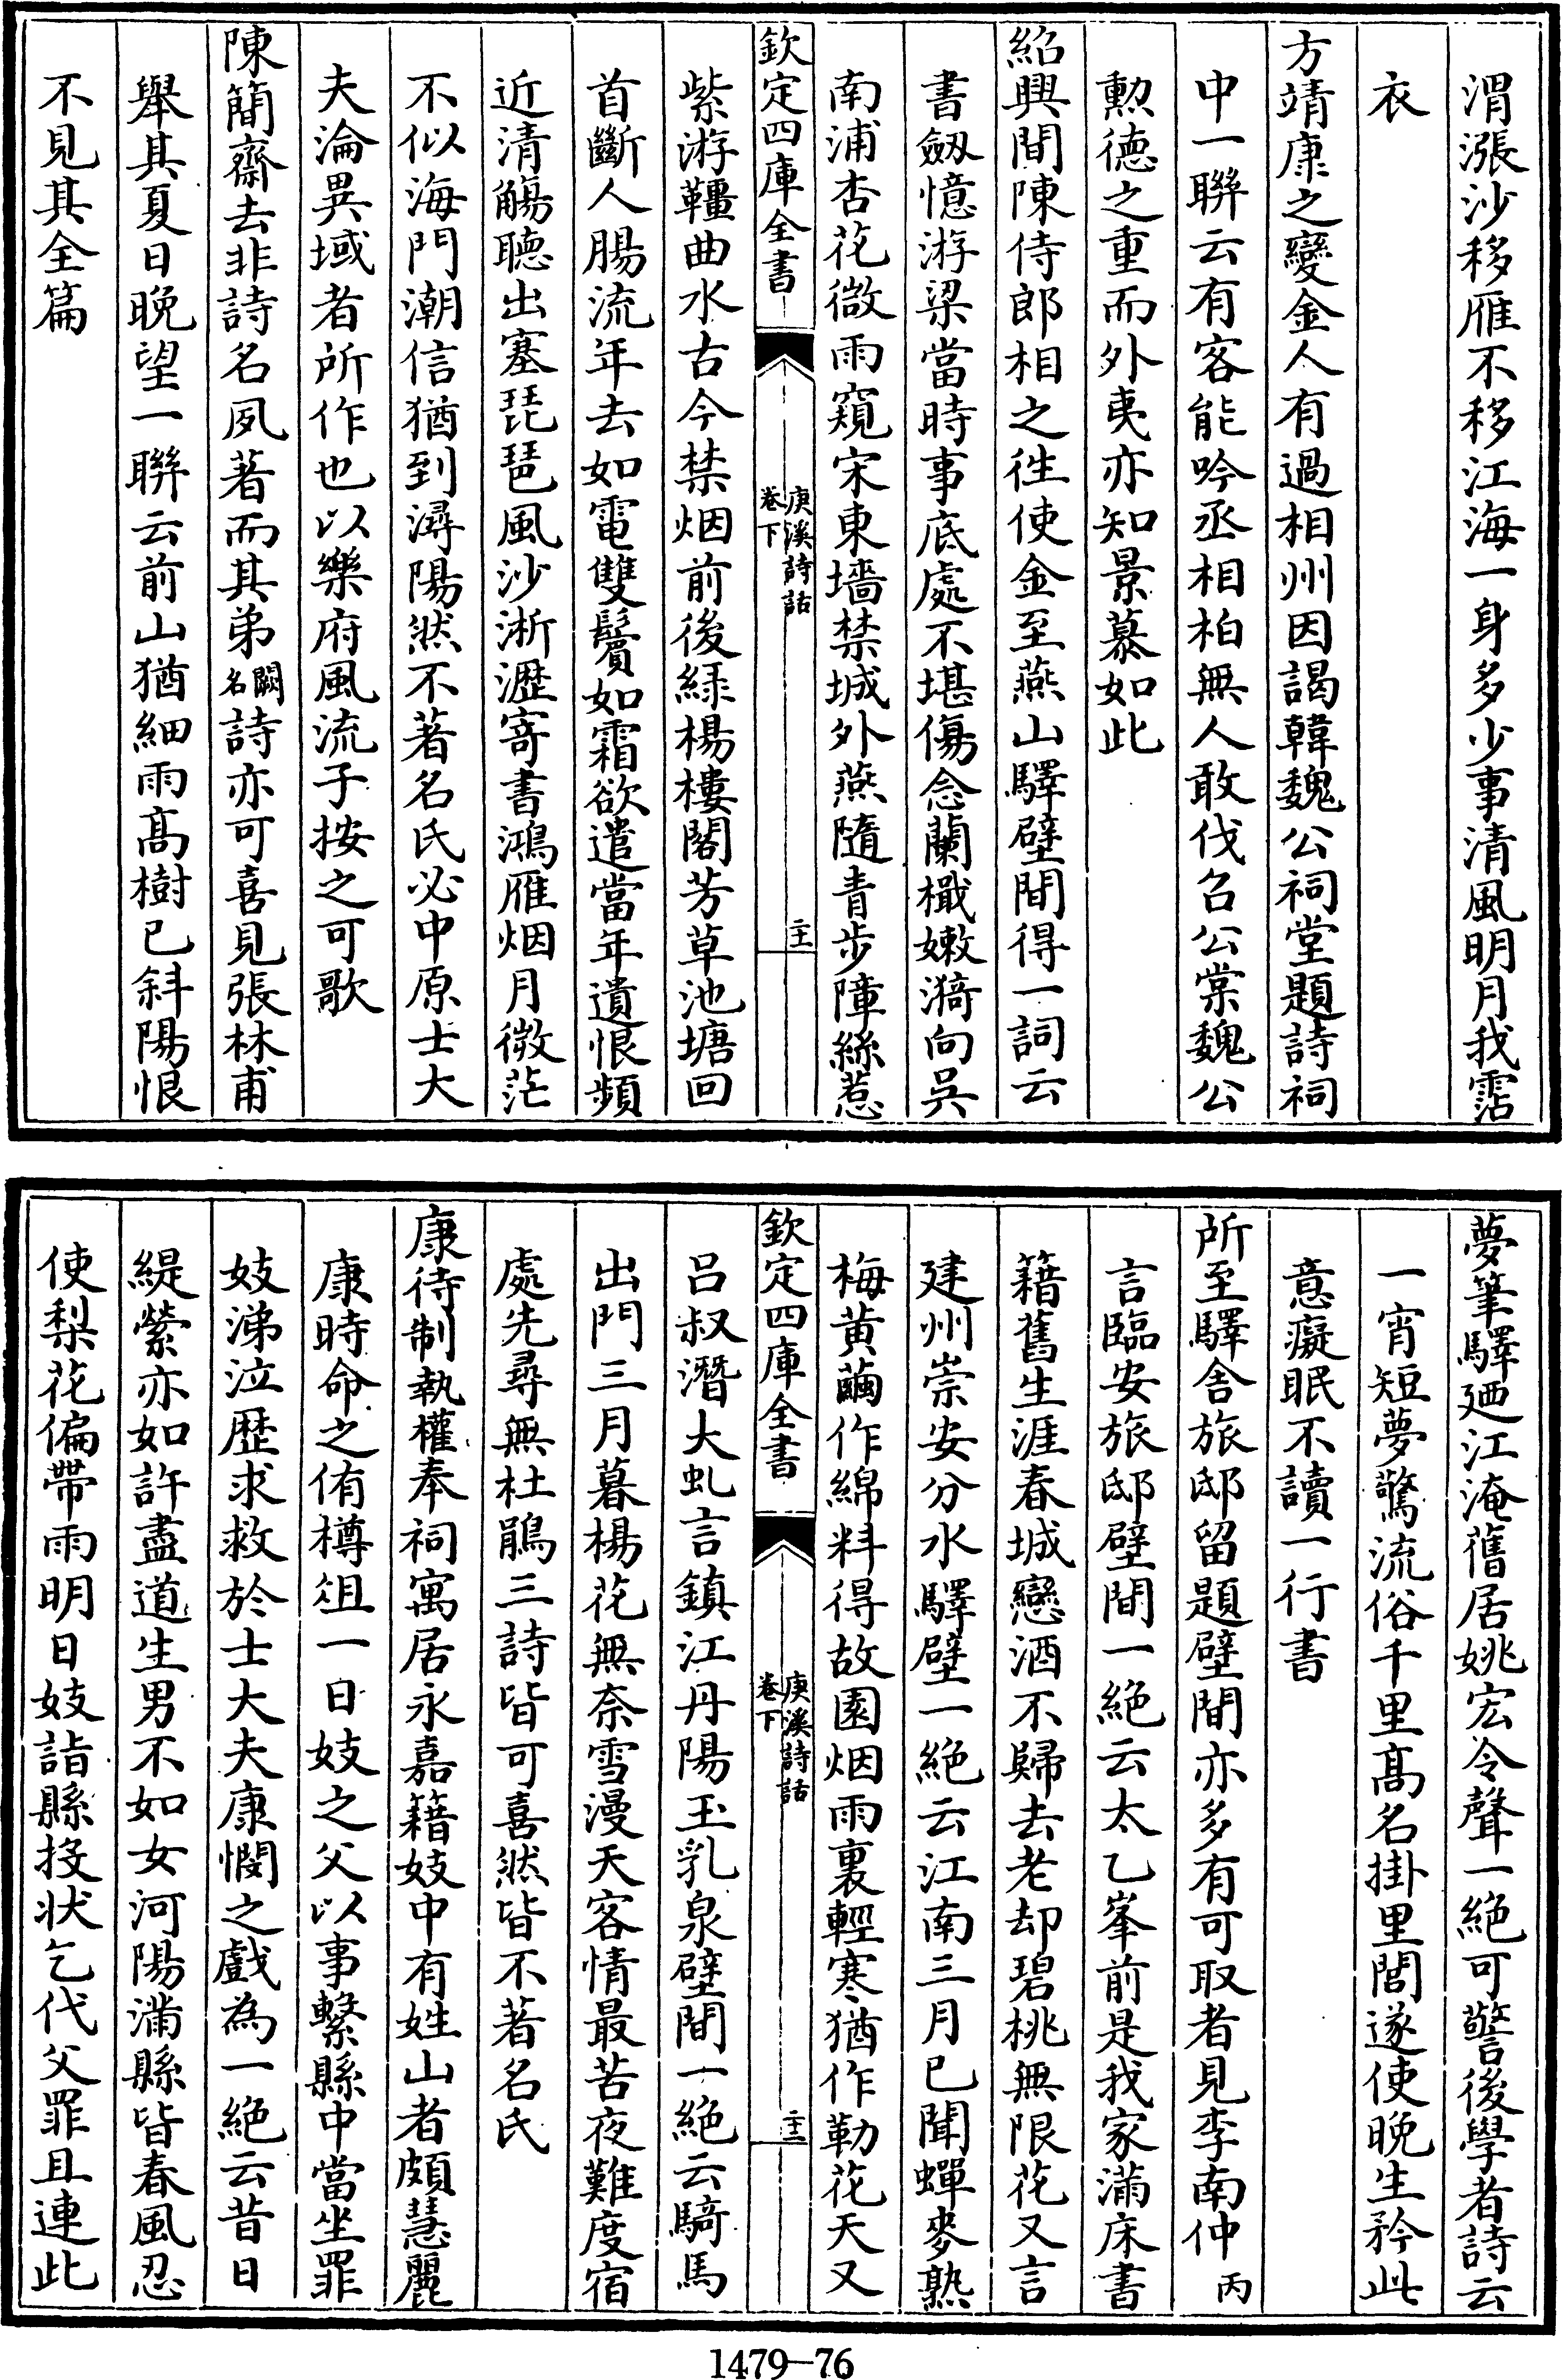 渭漲沙移雁不移江海一身多少事清風明月我霑
衣
方靖康之變金人有過相州因謁韓魏公祠堂題詩祠
中一聯云有客能吟丞相柏無人敢伐召公棠魏公
勲徳之重而外夷亦知景慕如此
紹興間陳侍郎相之徃使金至燕山驛壁間得一詞云
書劔憶游梁當時事底處不堪傷念蘭檝嫩漪向吳
南浦杏花微雨窺宋東墻禁城外燕隨青步障絲惹
欽定四庫全書
庚溪詩話
卷下
二十一
紫游韁曲水古今禁烟前後緑楊樓閣芳草池塘回
首斷人腸流年去如電雙鬢如霜欲遣當年遺恨頻
近清觴聽出塞琵琶風沙淅瀝寄書鴻雁烟月微茫
不似海門潮信猶到潯陽然不著名氏必中原士大
夫淪異域者所作也以樂府風流子按之可歌
陳簡齋去非詩名夙著而其弟闕名詩亦可喜見張林甫
舉其夏日晚望一聯云前山猶細雨髙樹已斜陽恨
不見其全篇
夢筆驛廼江淹舊居姚宏令聲一絶可警後學者詩云
一宵短夢驚流俗千里髙名掛里閭遂使晚生矜此
意癡眠不讀一行書
所至驛舍旅邸留題壁間亦多有可取者見李南仲丙
言臨安旅邸壁間一絶云太乙峯前是我家滿床書
籍舊生涯春城戀酒不歸去老却碧桃無限花又言
建州崇安分水驛壁一絶云江南三月已聞蟬麥熟
梅黄繭作綿料得故園烟雨裏輕寒猶作勒花天又
欽定四庫全書
庚溪詩話
卷下
二十二
吕叔潛大虬言鎮江丹陽玉乳泉壁間一絶云騎馬
出門三月暮楊花無奈雪漫天客情最苦夜難度宿
處先尋無杜鵑三詩皆可喜然皆不著名氏
康待制執權奉祠寓居永嘉籍妓中有姓山者頗慧麗
康時命之侑樽俎一日妓之父以事繫縣中當坐罪
妓涕泣歴求救於士大夫康憫之戲為一絶云昔日
緹縈亦如許盡道生男不如女河陽滿縣皆春風忍
使梨花偏帶雨明日妓詣縣投狀乞代父罪且連此
1479—76